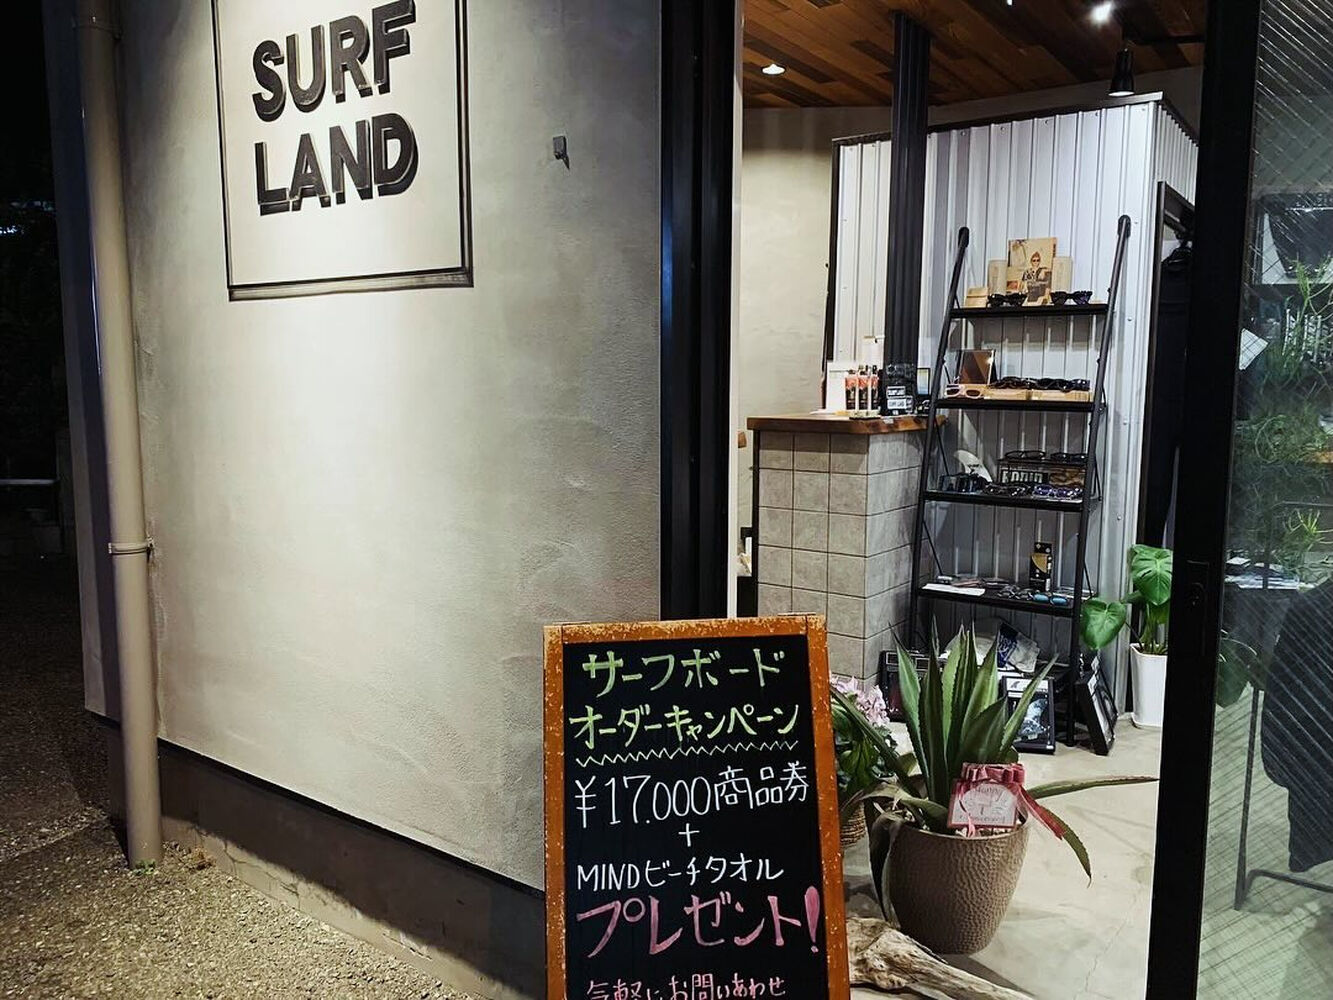 SURF
LAND
サーフボード
オーダーキャンペーン
¥17.000商品券
+
MINDビーチタオル
プレゼント!
気軽にお問いあわせ
Happy